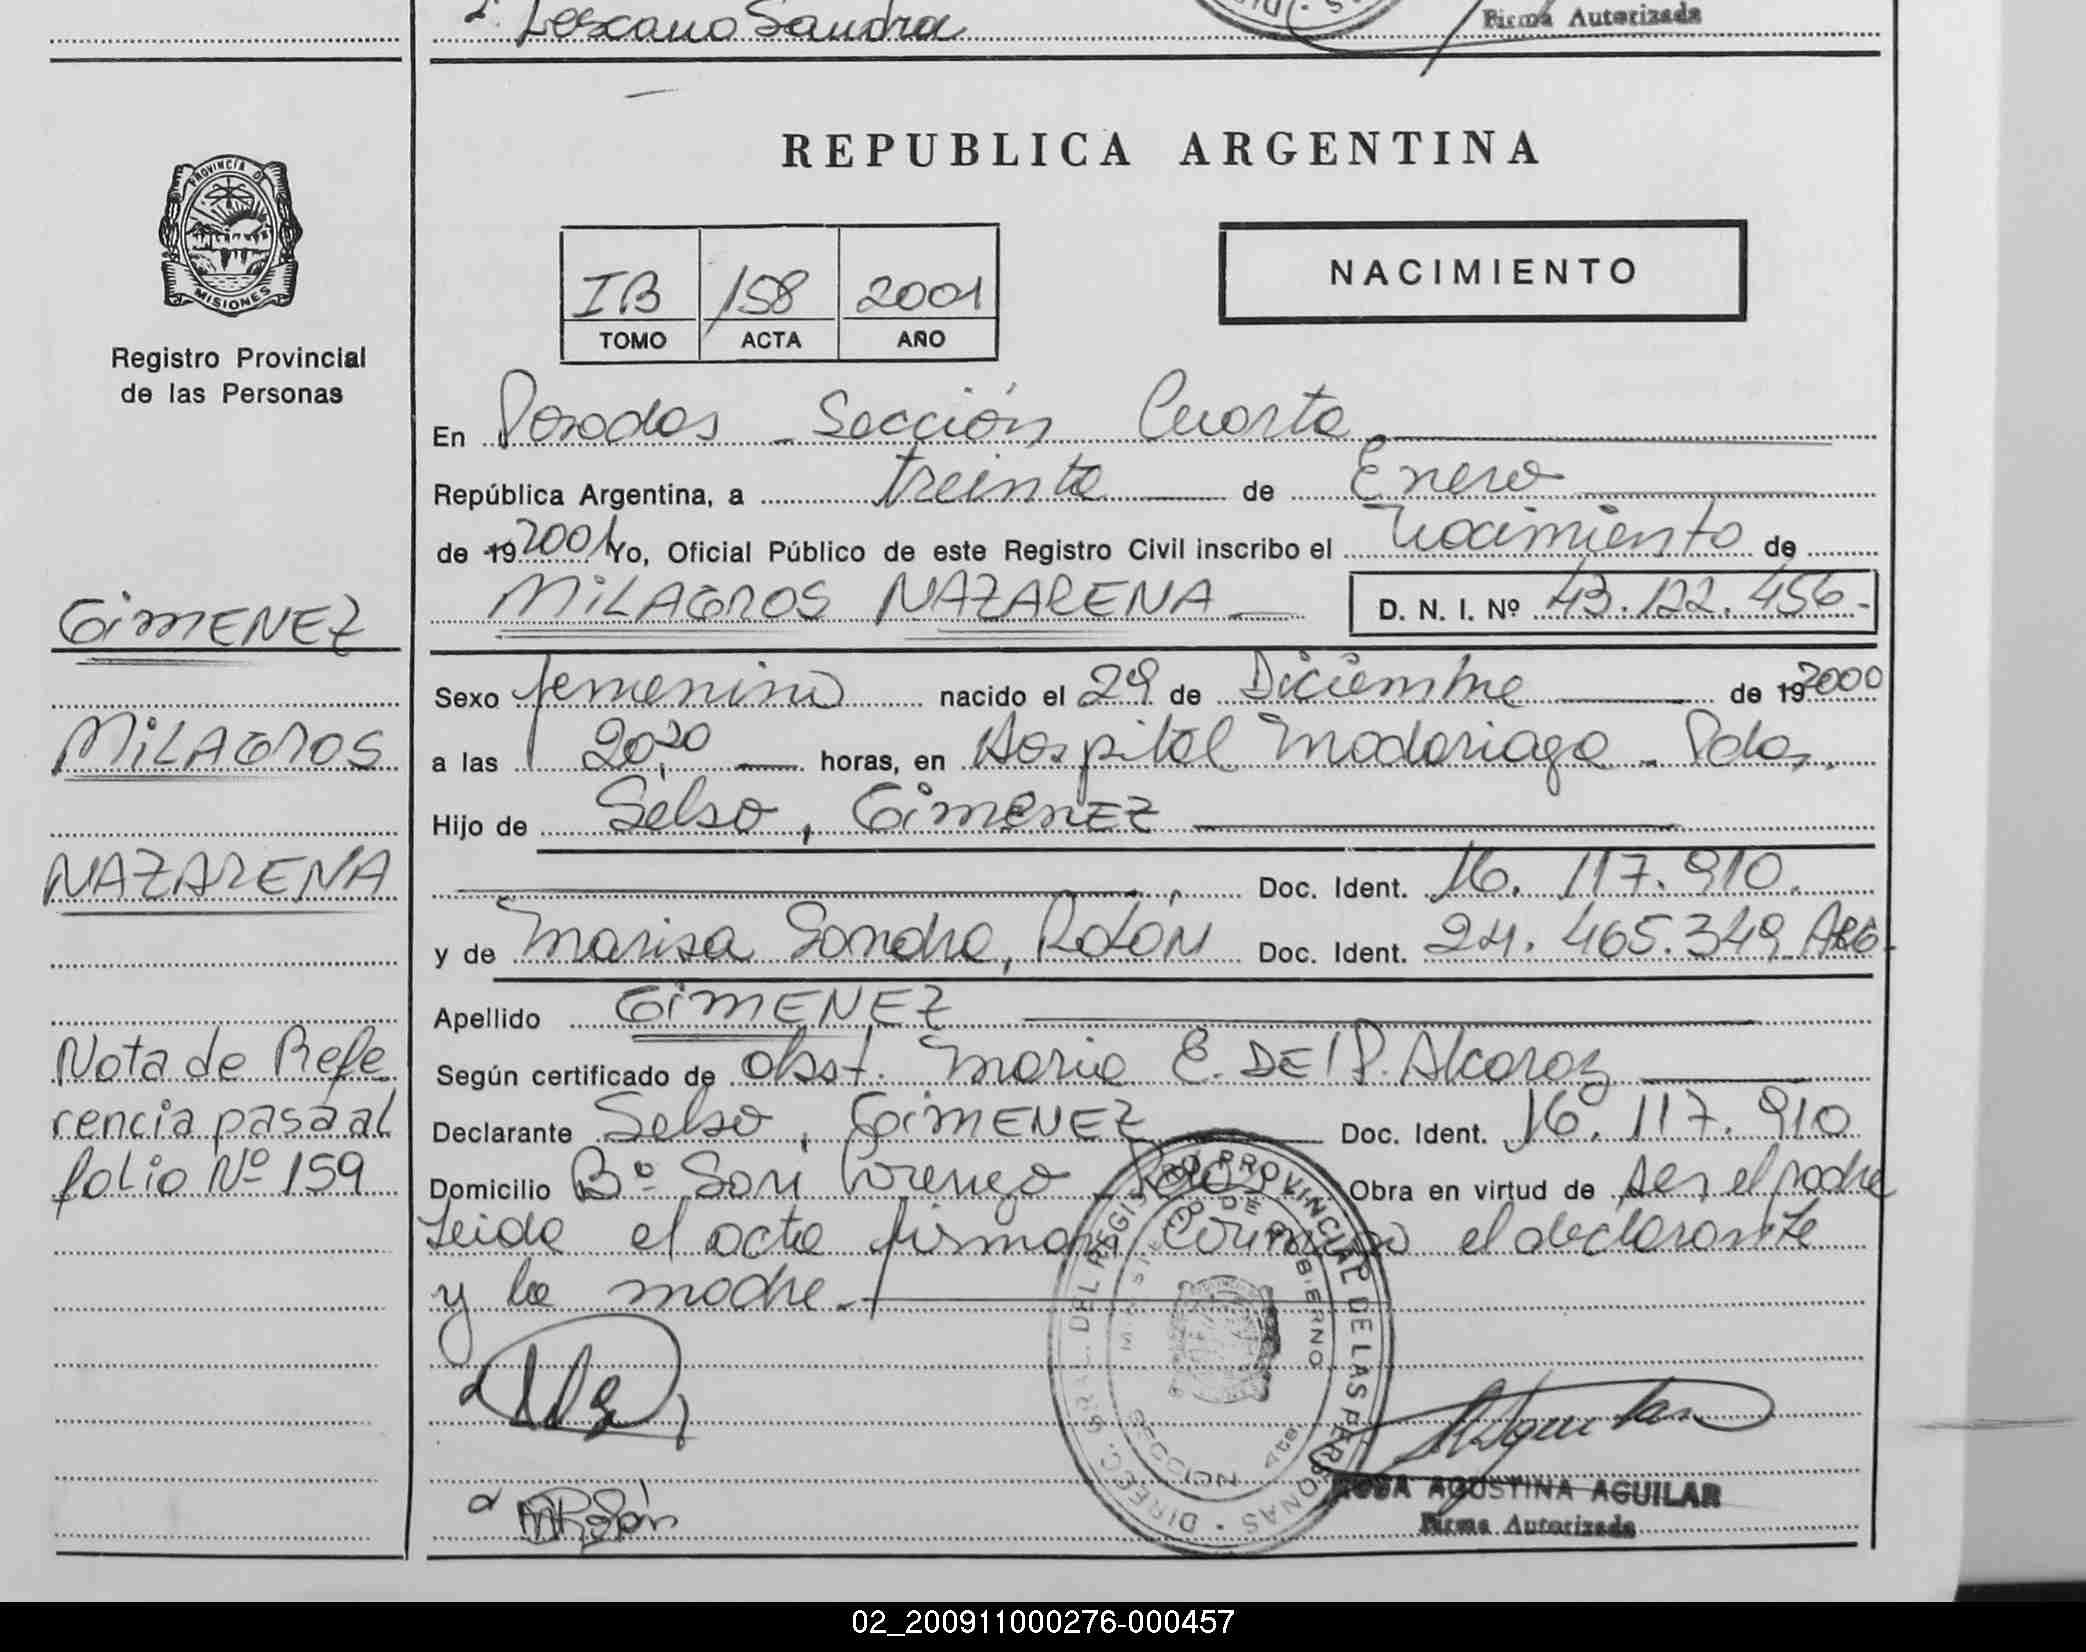 2. Lescano Sandra
Firma Autorizada
PROVINCIA DE
MISIONES
Registro Provincial
de las Personas
REPUBLICA ARGENTINA
IB 158 2001
TOMO ACTA AÑO
NACIMIENTO
En Posadas - Sección Cuarta
República Argentina, a treinta de Enero
de 19 2001 Yo, Oficial Público de este Registro Civil inscribo el Nacimiento de
MILAGROS NAZARENA D. N. I. Nº 43.122.456.-
GIMENEZ
MILAGROS
NAZARENA
Sexo femenino nacido el 29 de Diciembre de 19 2000
a las 20,20 horas, en Hospital Madariaga - Pdas.
Hijo de Selso, GimenEZ
Doc. Ident. 16.117.910.
y de Marisa Sandra, Rolón Doc. Ident. 24.465.349 ARG.
Apellido GIMENEZ
Según certificado de obst. Maria E. DEl P. Alcaraz
Declarante Selso, GIMENEZ Doc. Ident. 16.117.910
Domicilio Bº San Lorenzo Pdas Obra en virtud de ser el padre
Leida el acta firman conmigo el declarante
y la madre.-
Nota de Refe
rencia pasa al
folio Nº 159
DIREC. GRAL. DEL REGISTRO PROVINCIAL DE LAS PERSONAS
MINISTERIO DE GOBIERNO
SECCION 4ta
MRolón
RAguilar
ROSA AGUSTINA AGUILAR
Firma Autorizada
02_200911000276-000457